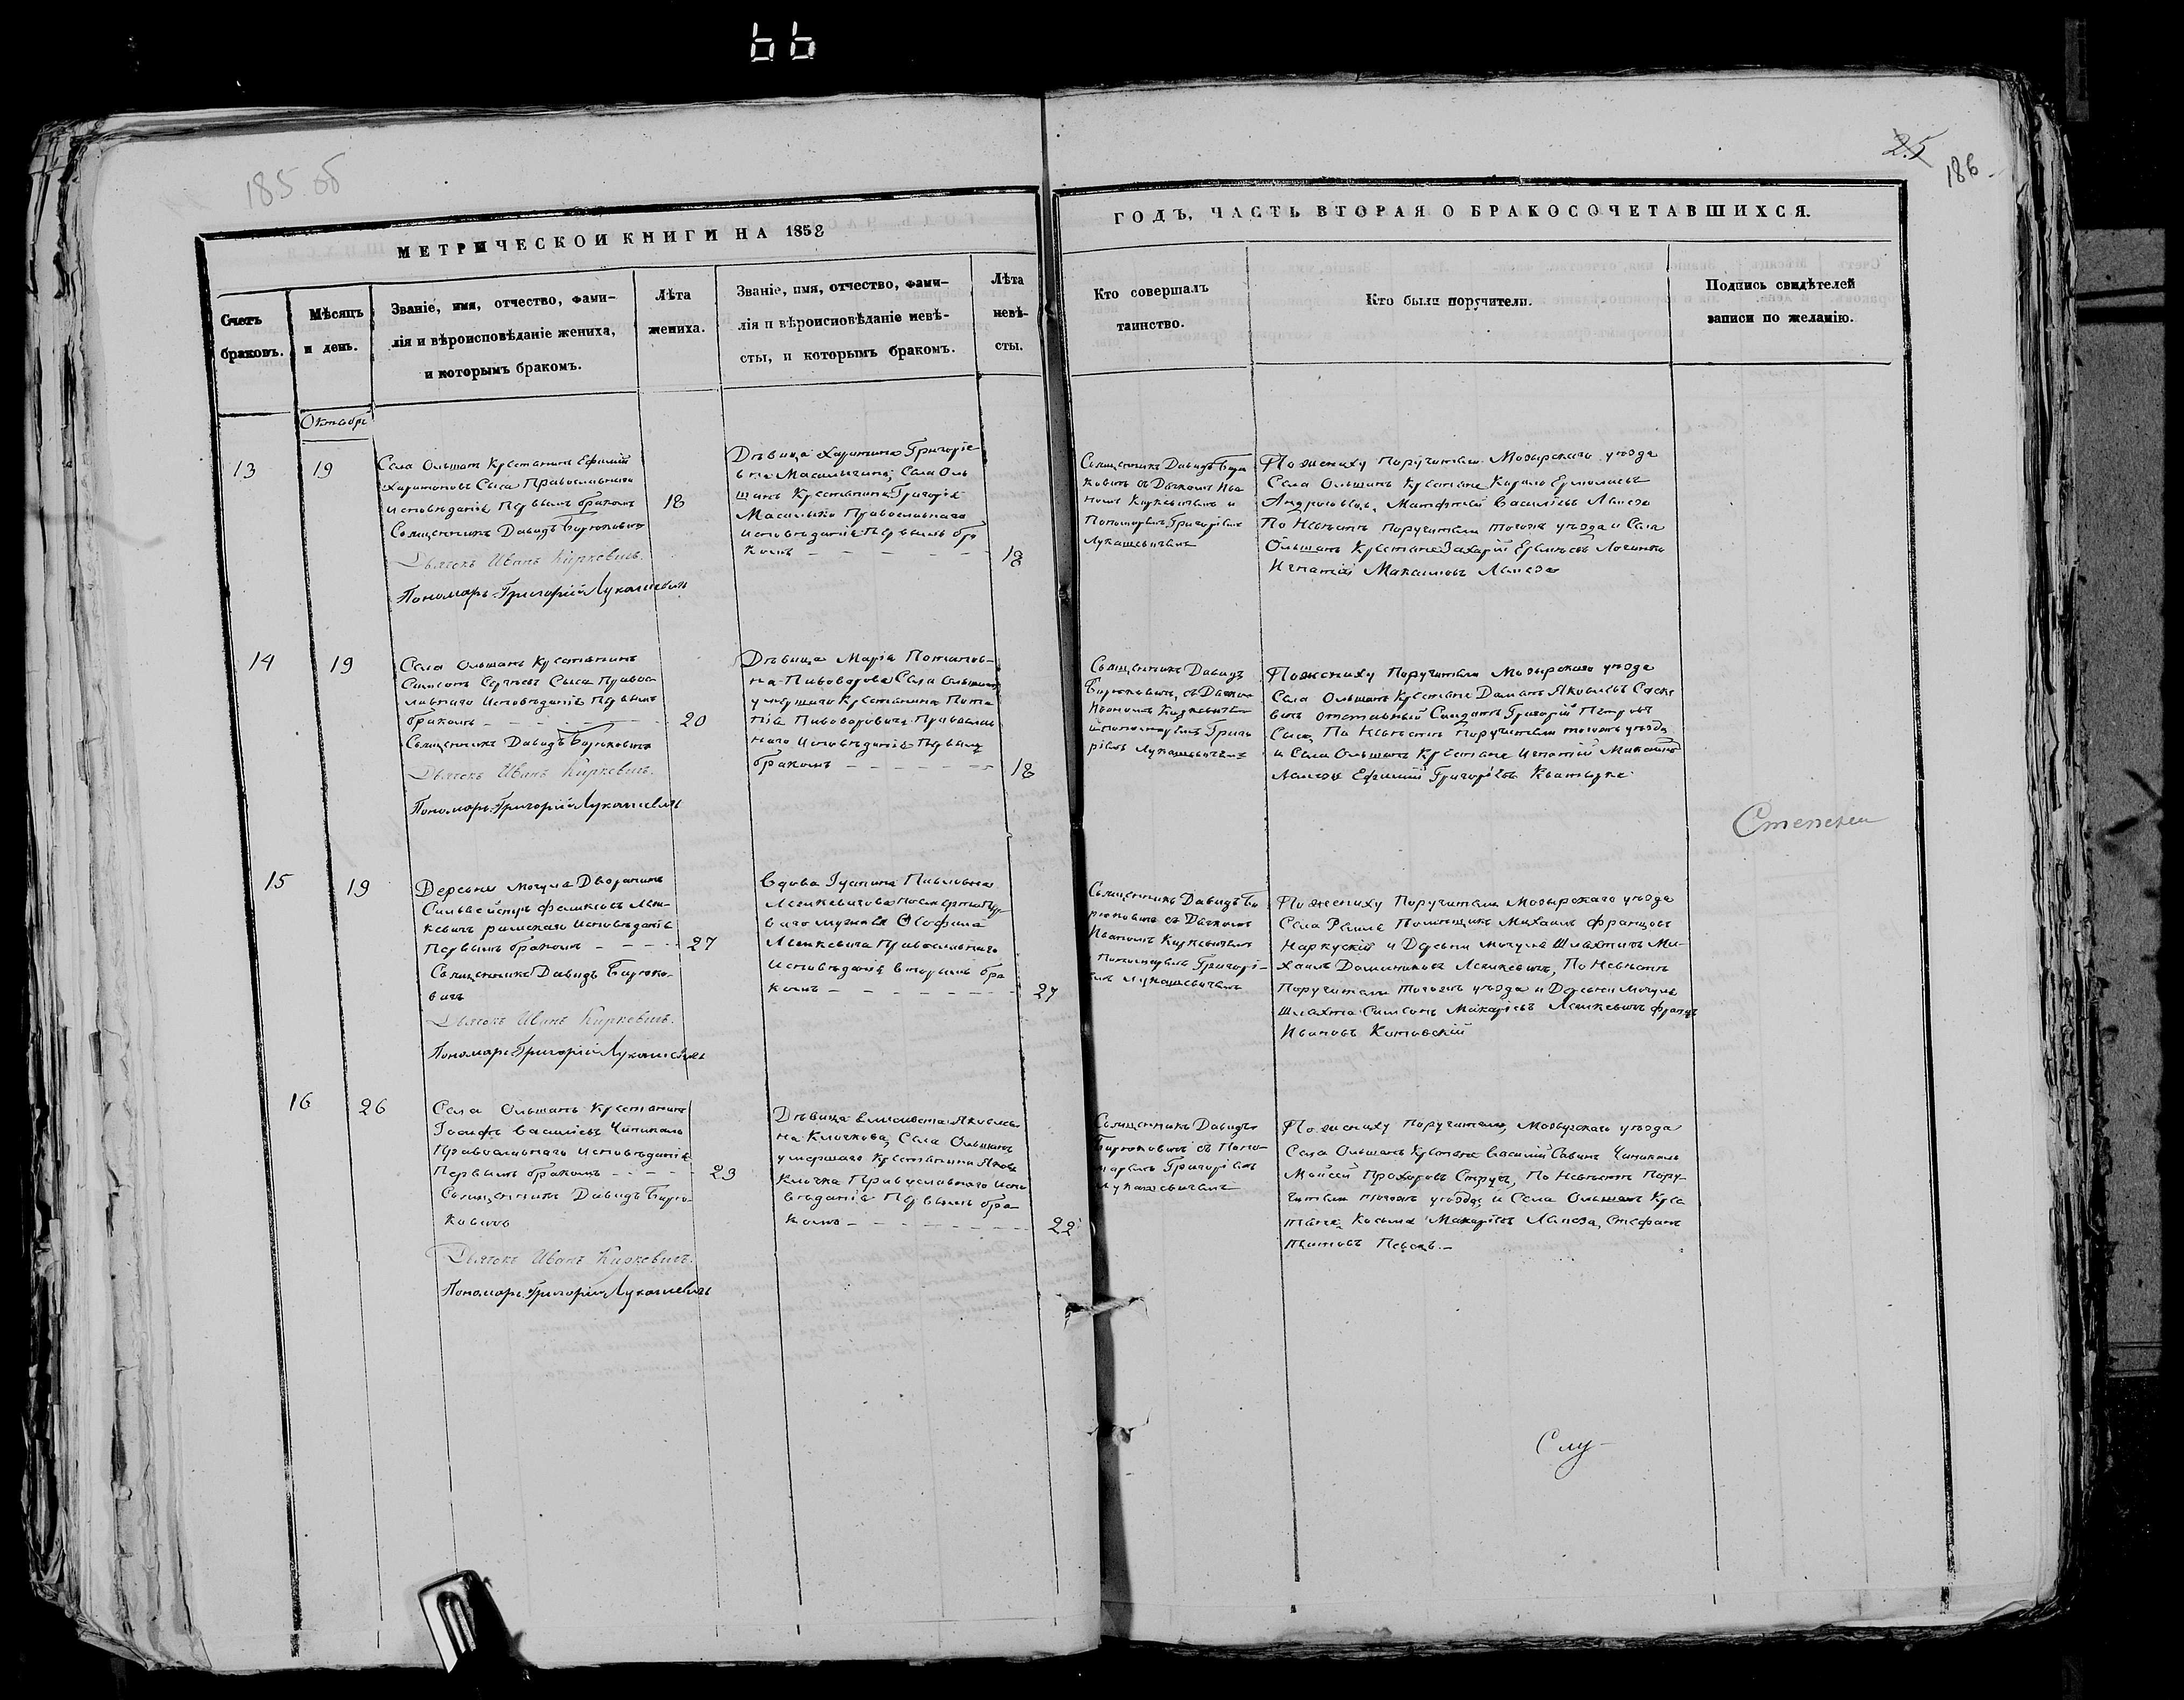 66
185 об
25
186
МЕТРИЧЕСКОЙ КНИГИ НА 1858
ГОДЪ, ЧАСТЬ ВТОРАЯ О БРАКОСОЧЕТАВШИХСЯ.
Счетъ
браковъ.
Мѣсяцъ
и день.
Званіе, имя, отчество, фами-
лія и вѣроисповѣданіе жениха,
и которымъ бракомъ.
Лѣта
жениха.
Званіе, имя, отчество, фами-
лія и вѣроисповѣданіе невѣ-
сты, и которымъ бракомъ.
Лѣта
невѣ-
сты.
Кто совершалъ
таинство.
Кто были поручители.
Подпись свидѣтелей
записи по желанію.
Октябрь
13
19
Села Ольшанъ Крестьянинъ Ефимій
Харитоновъ Сыса Православнаго
исповѣданія Первымъ бракомъ
18
Священникъ Давидъ Бирюковичъ
Дьячекъ Иванъ Киркевичъ.
Пономарь Григорій Лукашевичъ
Дѣвица Харитина Григоріе
вна Села Оль
шанъ Крестьянина Григорія
Православнаго
исповѣданія Первымъ бра
комъ
18
Священникъ Давидъ Бирю
ковичъ съ Дьячкомъ Ива
номъ Киркевичемъ и
Пономаремъ Григоріемъ
Лукашевичемъ
По жениху поручители Мозырскаго уѣзда
Села Ольшанъ Крестьяне Кирило Ермолаевъ
Матфей Васильевъ Лапеза
По Невѣстѣ поручители тогожъ уѣзда и Села
Ольшанъ Крестьяне Захарій
Игнатій Макаимовъ Лапеза
14
19
Села Ольшанъ Крестьянинъ
Самсонъ Сергѣевъ Сыса Право
лавнаго Исповѣданія Первымъ
бракомъ
20
Священникъ Давидъ Бирюковичъ
Дьячекъ Иванъ Киркевичъ.
Пономарь Григорій Лукашевичъ
Дѣвица Марія Потапов-
на Пивоварова Села Ольшанъ
умершаго Крестьянина Пота
пія Пивоваровича Православ
наго Исповѣданія Первымъ
бракомъ
18
Священникъ Давидъ
Бирюковичъ, съ Дьячко
Иваномъ Киркевичемъ
и пономаремъ Григо
ріемъ Лукашевичемъ
По жениху Поручители Мозырскаго уѣзда
Села Ольшанъ Крестьяне Яковлевъ
отставный Солдатъ Григорій Петровъ
Сыса, По Невѣстѣ Поручители тогожъ уѣзда
и Села Ольшанъ Крестьяне Игнатій
Лапеза Ефимій Григоріевъ
15
19
Деревни Могула Дворянинъ
Сильвейстръ Феликсовъ Лен-
кевичъ римскаго исповѣданія
Первымъ бракомъ
27
Священникъ Давидъ Бирюко-
вичъ
Дьячекъ Иванъ Киркевичъ.
Пономарь Григорій Лукашевичъ
Вдова Іустина Павловна
Ленкевичова
Ленкевича Православнаго
Исповѣданія вторымъ бра
комъ
27
Священникъ Давидъ Би
рюковичъ съ Дьячкомъ
Иваномъ Киркевичемъ
Пономаремъ Григорі-
емъ Лукашевичемъ
По жениху Поручители Мозырскаго уѣзда
Села Помѣщикъ Михаилъ Францовъ
Наркускій и Деревни Могула Шляхтичъ Ми-
хаилъ Доминиковъ Ленкевичъ, По Невѣстѣ
Поручители тогожъ уѣзда и Деревни Могула
Шляхта Самсонъ Макаріевъ Ленкевичъ Францъ
Ивановъ Котовскій
Степени
16
26
Села Ольшанъ Крестьянинъ
Іосифъ Васильевъ Чипикалъ
Православнаго Исповѣданія
Первымъ бракомъ
23
Священникъ Давидъ Бирю-
ковичъ
Дьячекъ Иванъ Киркевичъ.
Пономарь Григорій Лукашевичъ
Дѣвица Елисавета Яковлев
на Клочкова, Села Ольшанъ
умершаго Крестьянина Якова
Клочка Православнаго Испо
вѣданія Первымъ бра
комъ
22
Священникъ Давидъ
Бирюковичъ съ Поно-
маремъ Григоріемъ
Лукашевичемъ
По жениху Поручители, Мозырскаго уѣзда
Села Ольшанъ Крестьяне Василій Савинъ Чипикалъ
Моисей Прохоровъ Струкъ, По Невѣстѣ Пору-
чители тогожъ уѣзда, и Села Ольшанъ Крес
тьяне, Косьма Макаріевъ Лапеза, Стефанъ
Певецъ.
Слу-